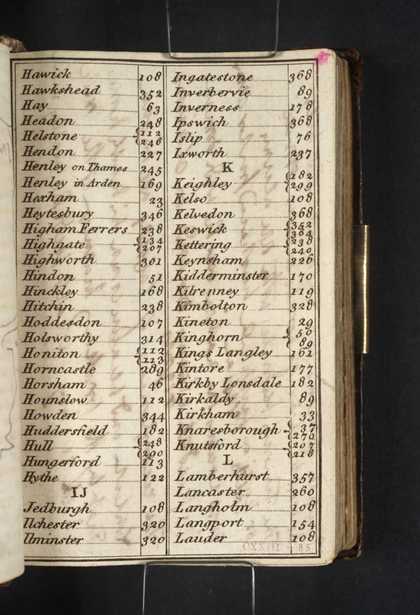 Hawick 108
Hawkshead 352
Hay 63
Headon 248
Helstone {112
{248
Hendon 227
Henley on Thames 245
Henley in Arden 169
Hexham 23
Heytesbury 346
Higham Ferrers 238
Highgate {134
{207
Highworth 301
Hindon 51
Hinckley 168
Hitchin 238
Hoddesdon 107
Holsworthy 314
Honiton {112
{113
Horncastle 289
Horsham 46
Hounslow 112
Howden 344
Huddersfield 182
Hull {248
{290
Hungerford 113
Hythe 122
IJ
Jedburgh 108
Ilchester 320
Ilminster 320
Ingatestone 368
Inverbervie 89
Inverness 178
Ipswich 368
Islip 76
Ixworth 237
K
Keighley {182
{299
Kelso 108
Kelvedon 368
Keswick {352
{364
Kettering {238
{240
Keynsham 226
Kidderminster 170
Kilrenney 119
Kimbolton 328
Kineton 29
Kinghorn {50
{89
Kings Langley 161
Kintore 177
Kirkby Lonsdale 182
Kirkaldy 89
Kirkham 33
Knaresborough {37
{279
Knutsford {207
{218
L
Lamberhurst 357
Lancaster 260
Langholm 108
Langport 154
Lauder 108